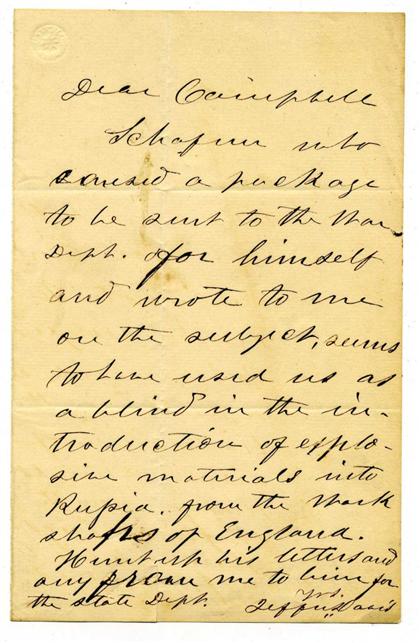 Dear Campbell
Schafner who
caused a package
to be sent to the War
Dept. for himself
and wrote to me
on the subject, seems
to have used us as
a blind in the in-
troduction of explo-
sive materials into
Russia. from the Work
shops of England.
Hunt up his letters and
any from me to him for
the State Dept. Yrs.
Jeffn. Davis